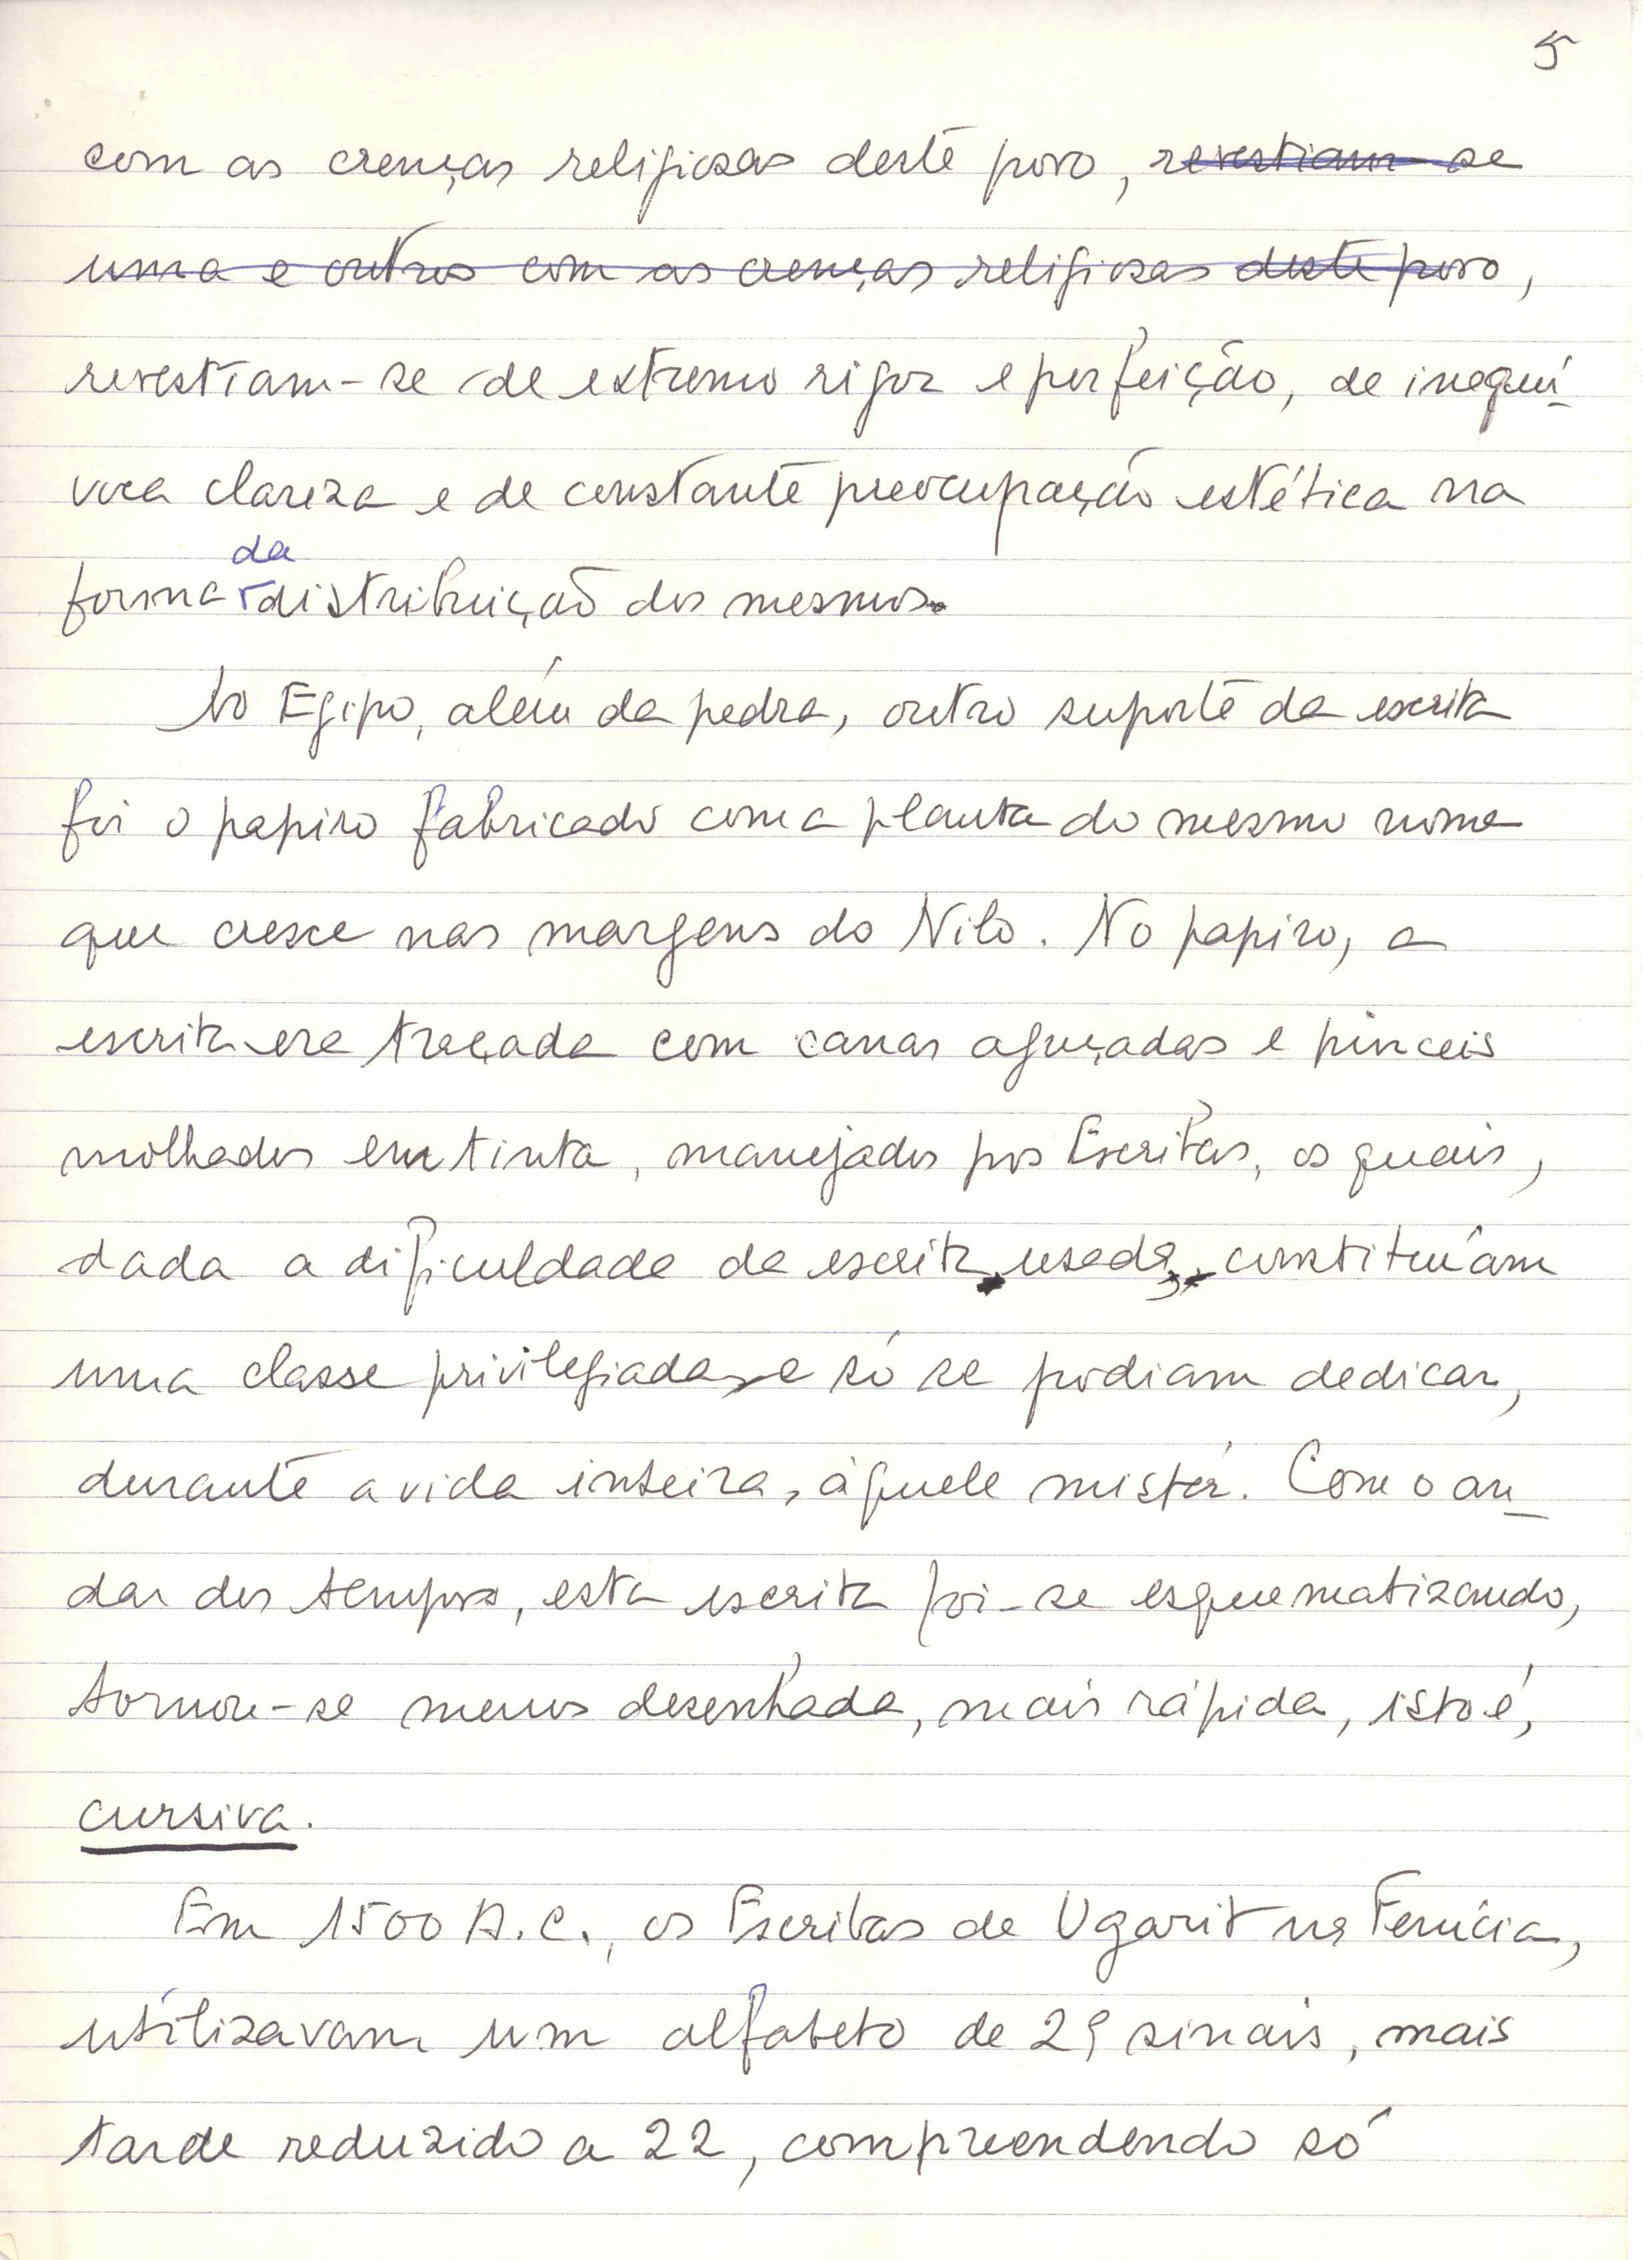 5
com as crenças religiosas deste povo, revestiam-se
uma e outros com as crenças religiosas deste povo,
revestiam-se de extremo rigor e perfeição, de inequí-
voca clareza e de constante preocupação estética na
da
forma distribuição dos mesmos.
No Egipo, além da pedra, outro suporte da escrita
foi o papiro fabricado com a planta do mesmo nome
que cresce nas margens do Nilo. No papiro, a
escrita era traçada com canas aguçadas e pinceis
molhados em tinta, manejados por Escribas, os quais,
dada a dificuldade da escrita usada, constituíam
uma classe privilegiada e só se podiam dedicar,
durante a vida inteira, àquele mistér. Com o an-
dar dos tempos, esta escrita foi-se esquematizando,
tornou-se menos desenhada, mais rápida, isto é,
cursiva.
Em 1500 A.C., os Escribas de Ugarit na Fenícia,
utilizavam um alfabeto de 29 sinais, mais
tarde reduzido a 22, compreendendo só